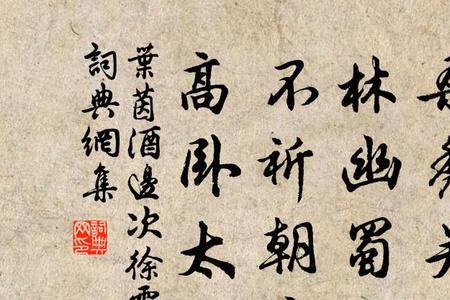 林幽蜀
不祈朝
高卧太
葉茵酒邊次徐
詞典網集
詞典
网印